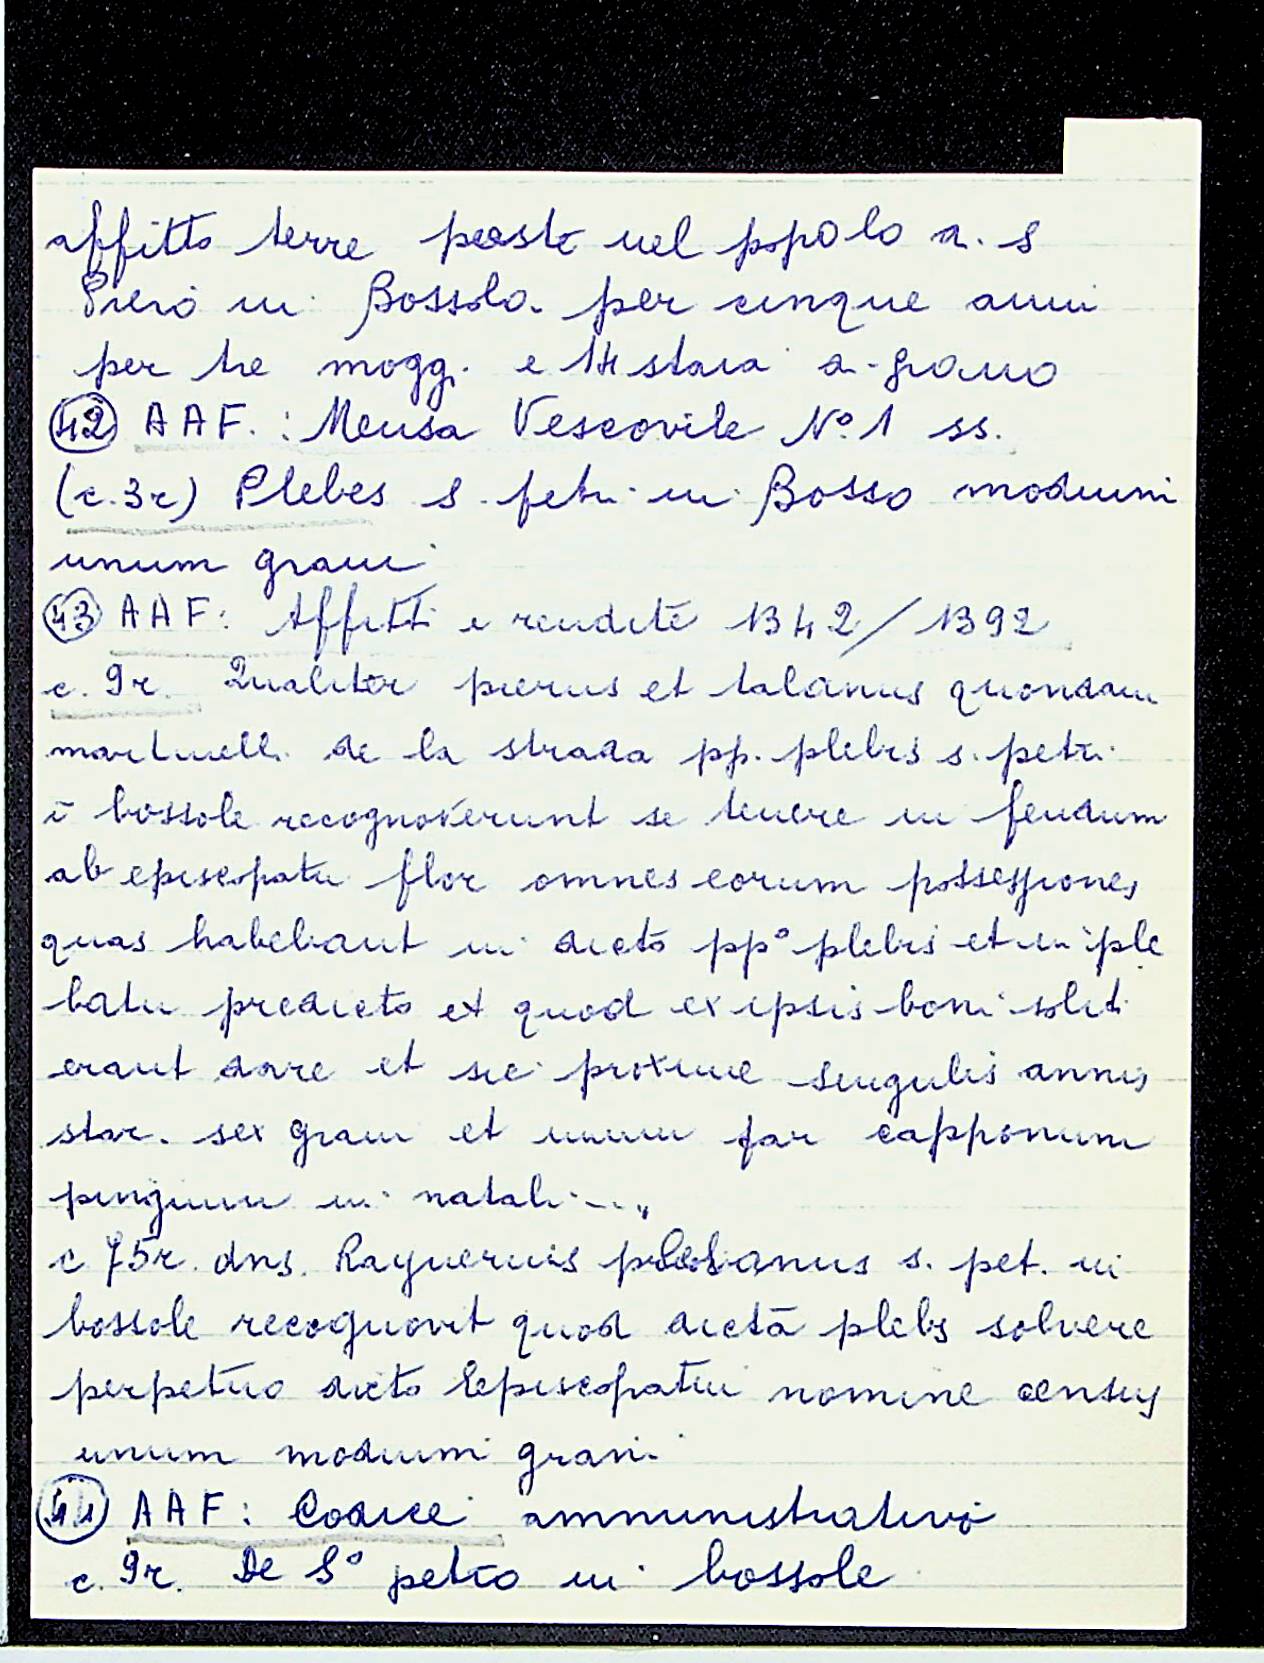 affitto terre poste nel popolo a. S
Piero in Bossolo. per cinque anni
per tre mogg. e 14 staia a. grano
42 AAF. : Mensa Vescovile N° 1 ss.
(c. 3r) Plebes S. petri in Bosso modium
unum grani
43 AAF: Affitti e rendite 1342/1392
c. 9r. Qualiter pierus et talanus quondam
martinelli de la strada pp. plebis s. petri
i bossole recognoverunt se tenere in feudum
ab episcopatu flor omnes eorum possessiones
quas habebant in dicto pp° plebis et in ple
batu predicto et quod ex ipsis boni solit
erant dare et sic proxime singulis annis
star. sex grani et unum par capponum
pinguium in natali...
c 75r. dns. Raynerius plebanus s. pet. in
bossole recognovit quod dictā plebs solvere
perpetuo dicto Episcopatui nomine census
unum modium grani
AAF: Codice amministrativo
c. 9r. De S° petro in bossole